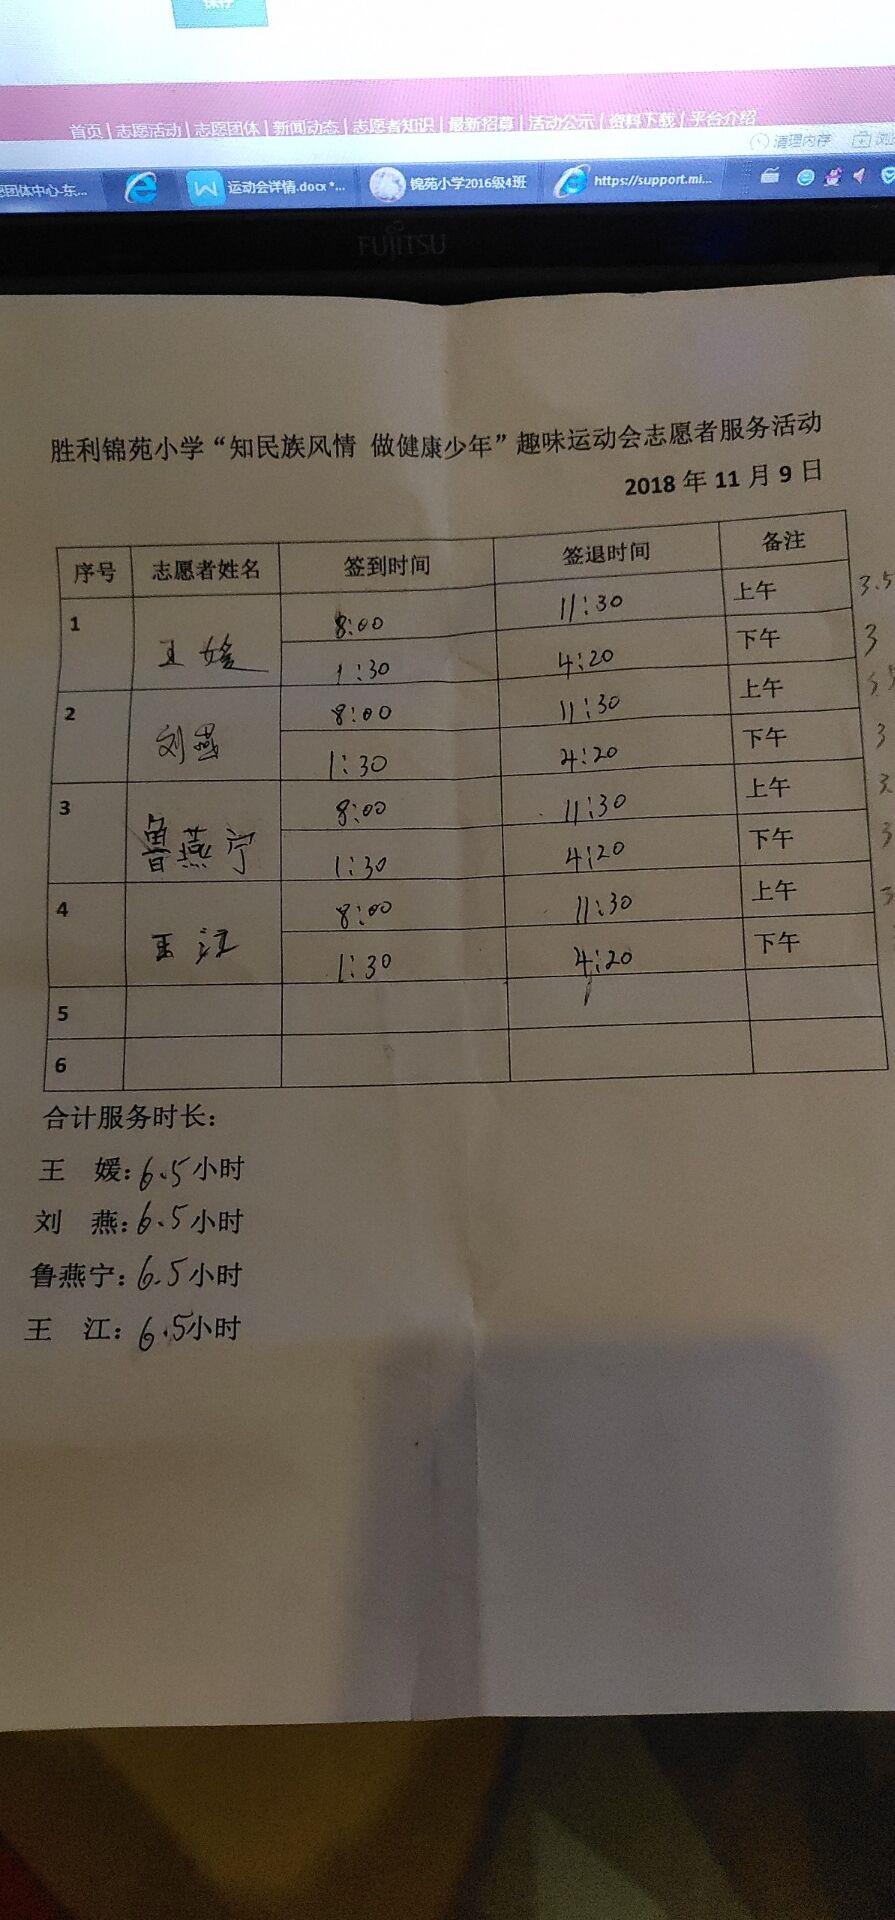 保存
首页 | 志愿活动 | 志愿团体 | 新闻动态 | 志愿者知识 | 最新招募 | 活动公示 | 资料下载 | 平台介绍
清理内存
团体中心-东... 运动会详情.docx *... 锦苑小学2016级4班 https://support.mi...
FUJITSU
胜利锦苑小学“知民族风情 做健康少年”趣味运动会志愿者服务活动
2018 年 11 月 9 日
序号 志愿者姓名 签到时间 签退时间 备注
1 王媛 8:00 11:30 上午 3.5
1:30 4:20 下午 3
2 刘燕 8:00 11:30 上午
1:30 4:20 下午 3
3 鲁燕宁 8:00 11:30 上午 3.
1:30 4:20 下午 3
4 王江 8:00 11:30 上午 3
1:30 4:20 下午
5
6
合计服务时长：
王 媛：6.5小时
刘 燕：6.5小时
鲁燕宁：6.5小时
王 江：6.5小时